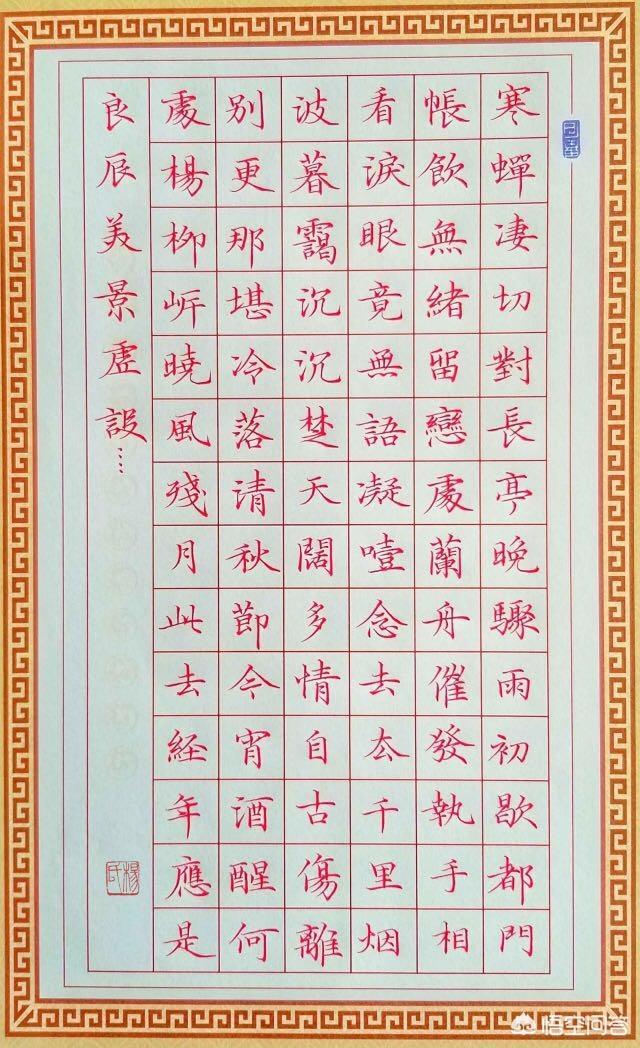 寒蟬凄切對長亭晚驟雨初歇都門
帳飲無緒留戀處蘭舟催發執手相
看淚眼竟無語凝噎念去去千里烟
波暮靄沉沉楚天闊多情自古傷離
別更那堪冷落清秋節今宵酒醒何
處楊柳岍曉風殘月此去経年應是
良辰美景虛設……
楊氏
悟空问答